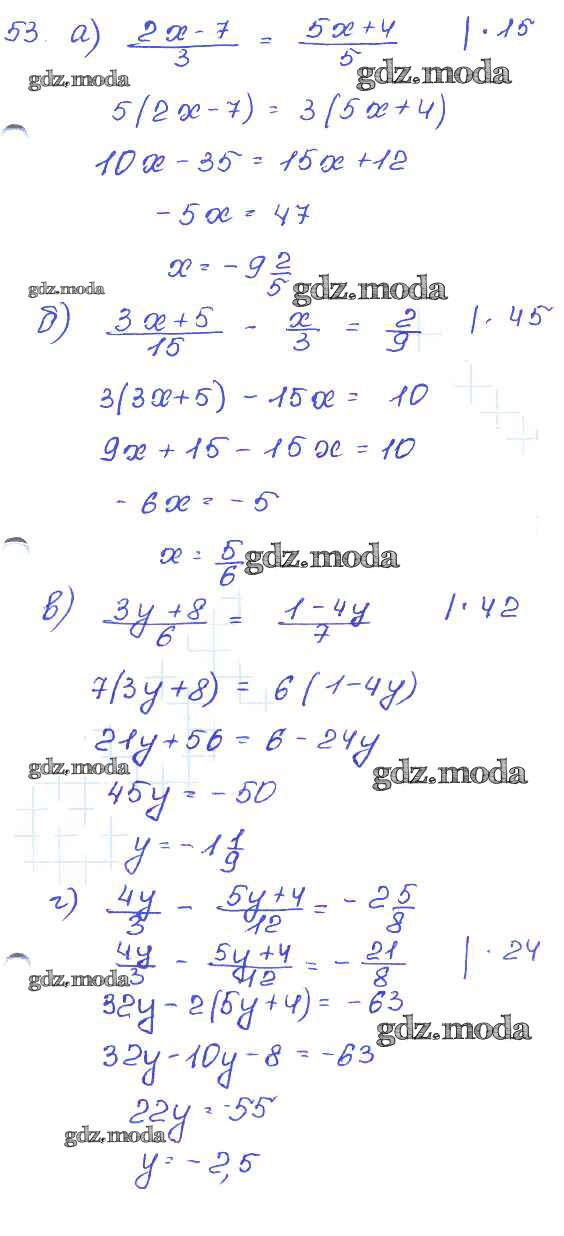 53. а) (2x-7)/3 = (5x+4)/5 |·15
gdz.moda gdz.moda
5(2x-7) = 3(5x+4)
10x-35=15x+12
-5x=47
x=-9 2/5
gdz.moda gdz.moda
б) (3x+5)/15 - x/3 = 2/9 |·45
3(3x+5)-15x= 10
9x+15-15x=10
-6x=-5
x=5/6 gdz.moda
в) (3y+8)/6 = (1-4y)/7 |·42
7(3y+8) = 6(1-4y)
21y+56=6-24y
gdz.moda gdz.moda
45y=-50
y=-1 1/9
г) 4y/3 - (5y+4)/12 = -2 5/8
4y/3 - (5y+4)/12 = -21/8 |·24
gdz.moda
32y-2(5y+4)=-63
gdz.moda
32y-10y-8=-63
22y=-55
gdz.moda
y=-2,5